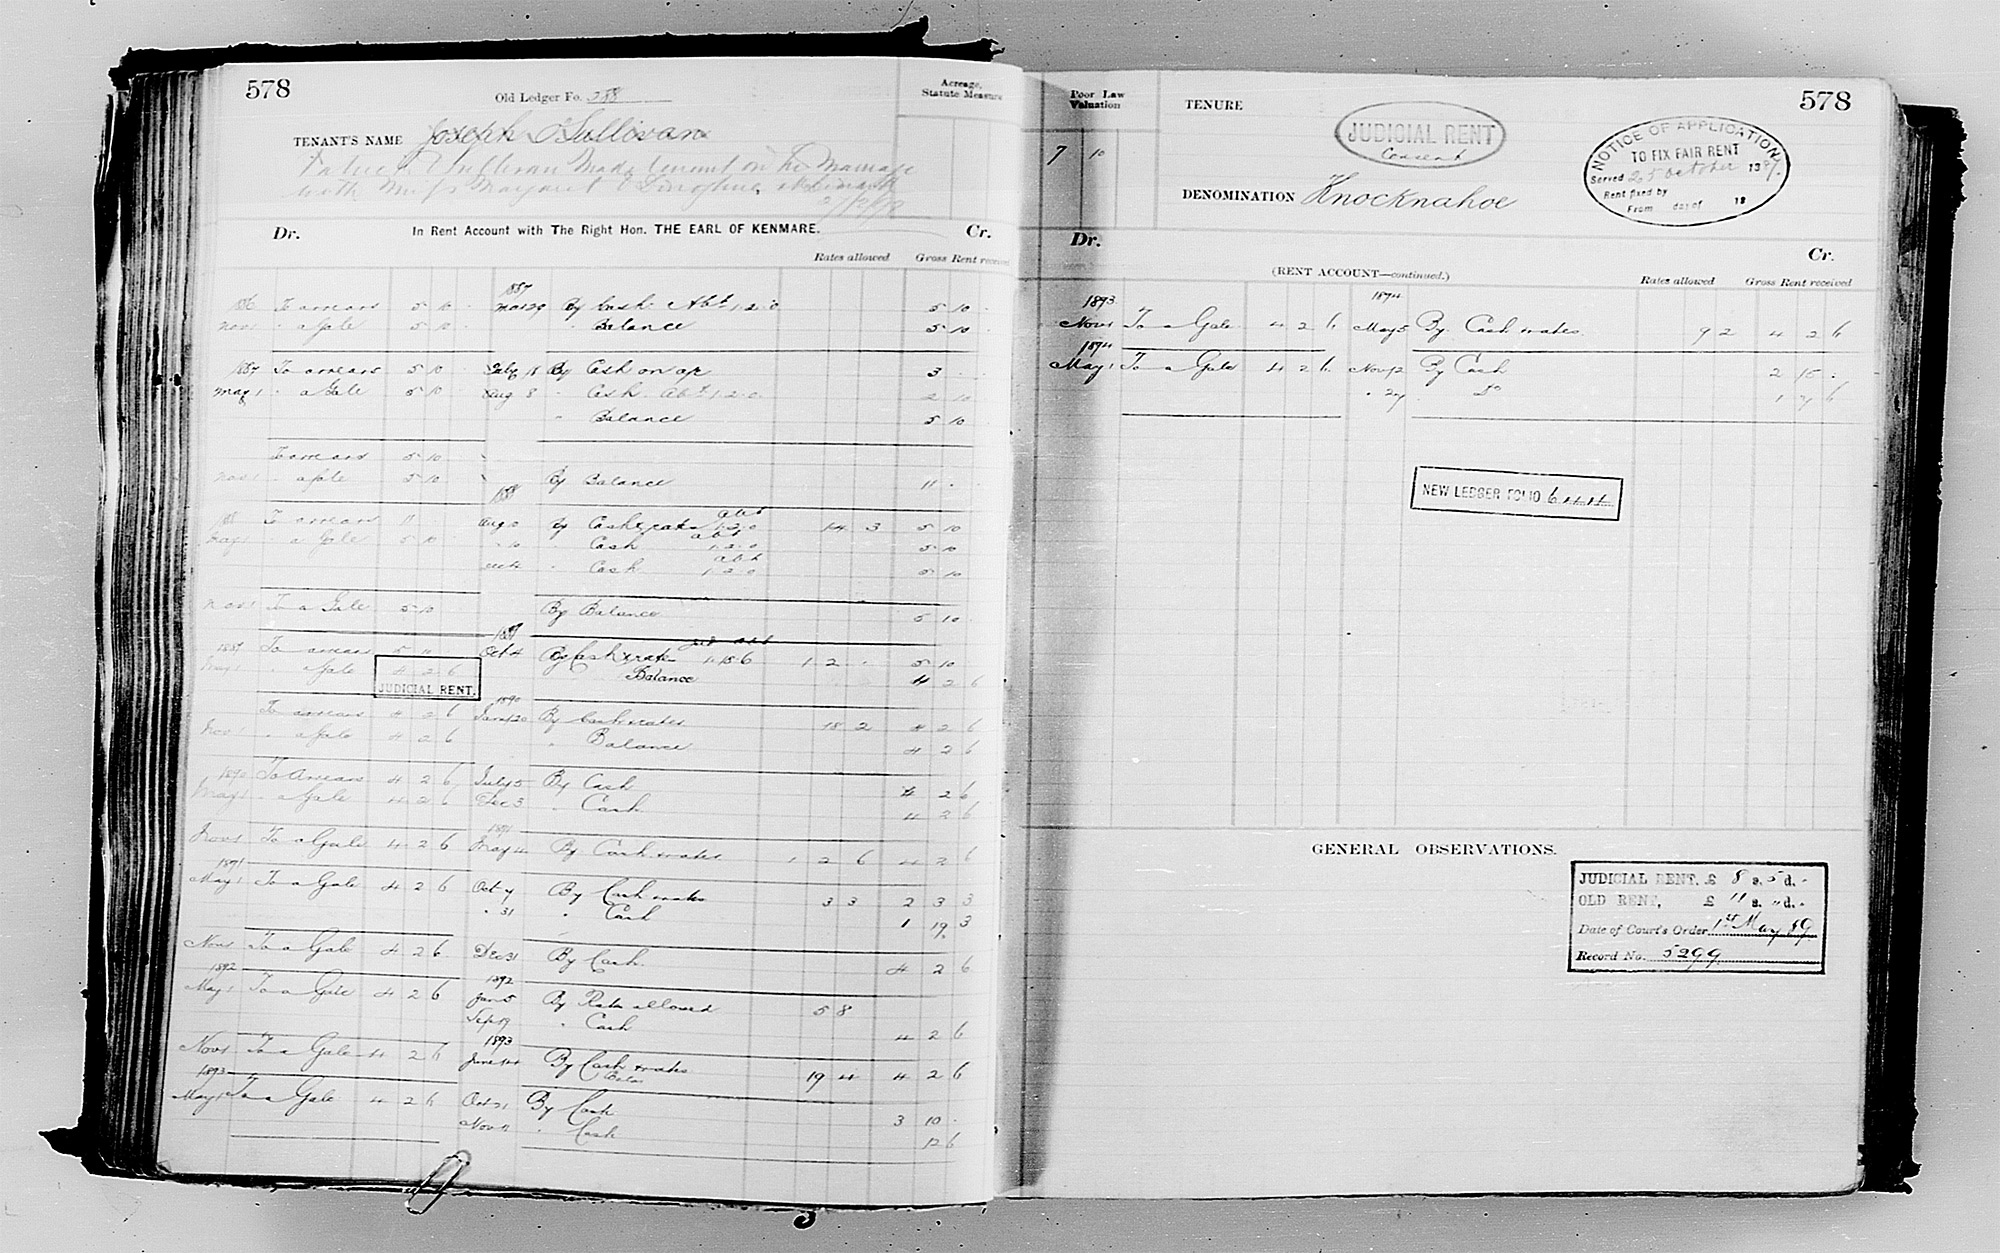 578
Old Ledger Fo. 388
Acreage, Statute Measure
TENANT'S NAME Joseph O'Sullivan
Sullivan Made tenant on his Marriage
with Miss Margaret
Dr. In Rent Account with The Right Hon. THE EARL OF KENMARE. Cr.
Rates allowed Gross Rent received
1887
1886 To arrears 5 10 - Mar 29 By Cash Abt 1.2.0 5 10 -
Nov 1 " a Gale 5 10 - " Balance 5 10 -
1887 To arrears 5 10 - July 18 By Cash on a/c 3 - -
May 1 " a Gale 5 10 - Aug 8 " Cash Abt 1.2.0 2 10
" Balance 5 10 -
To arrears 5 10
Nov 1 " a Gale 5 10 By Balance 11 -
1888
188 To arrears 11 Aug 10 By Cash & rates abt 1.2.0 14 3 5 10
May 1 " a Gale 5 10 " 10 " Cash abt 1.2.0 5 10
" Cash abt 1.2.0 5 10
Nov 1 To a Gale 5 10 By Balance 5 10
1889
1889 To arrears 5 10 Oct 4 By Cash & rates 1 2 - 5 10
May 1 " a Gale 4 2 6 Balance 4 2 6
JUDICIAL RENT.
1890
To arrears 4 2 6 Jany 20 By Cash & rates 18 2 4 2 6
Nov 1 " a Gale 4 2 6 " Balance 4 2 6
1890 To Arrears 4 2 6 July 5 By Cash 4 2 6
May 1 " a Gale 4 2 6 Dec 3 " Cash 4 2 6
1891
Nov 1 To a Gale 4 2 6 May 4 By Cash & rates 1 2 6 4 2 6
1891
May 1 To a Gale 4 2 6 Oct 7 By Cash & rates 3 3 2 3 3
" 31 " Cash 1 19 3
Nov 1 To a Gale 4 2 6 Dec 31 By Cash 4 2 6
1892 1892
May 1 To a Gale 4 2 6 Jan 5 By Rates allowed 5 8
Sep 19 " Cash 4 2 6
1893
Nov 1 To a Gale 4 2 6 June 14 By Cash & rates 19 4 4 2 6
1893
May 1 To a Gale 4 2 6 Oct 21 By Cash 3 10 -
Nov 11 " Cash 12 6
Poor Law Valuation
7 10
TENURE
JUDICIAL RENT
Consent
578
NOTICE OF APPLICATION
TO FIX FAIR RENT
Served 25 October 1887
Rent fixed by
From day of 18
DENOMINATION Knocknahoe
Dr. Cr.
(RENT ACCOUNT—continued.)
Rates allowed Gross Rent received
1893 1894
Nov 1 To a Gale 4 2 6 May 5 By Cash & rates 9 2 4 2 6
1894
May 1 To a Gale 4 2 6 Nov 12 By Cash 2 15 -
" 27 Do 1 7 6
NEW LEDGER FOLIO
GENERAL OBSERVATIONS.
JUDICIAL RENT, £ 8 s. 5 d. -
OLD RENT, £ 11 s. " d. -
Date of Court's Order 1st May 89
Record No. 5299